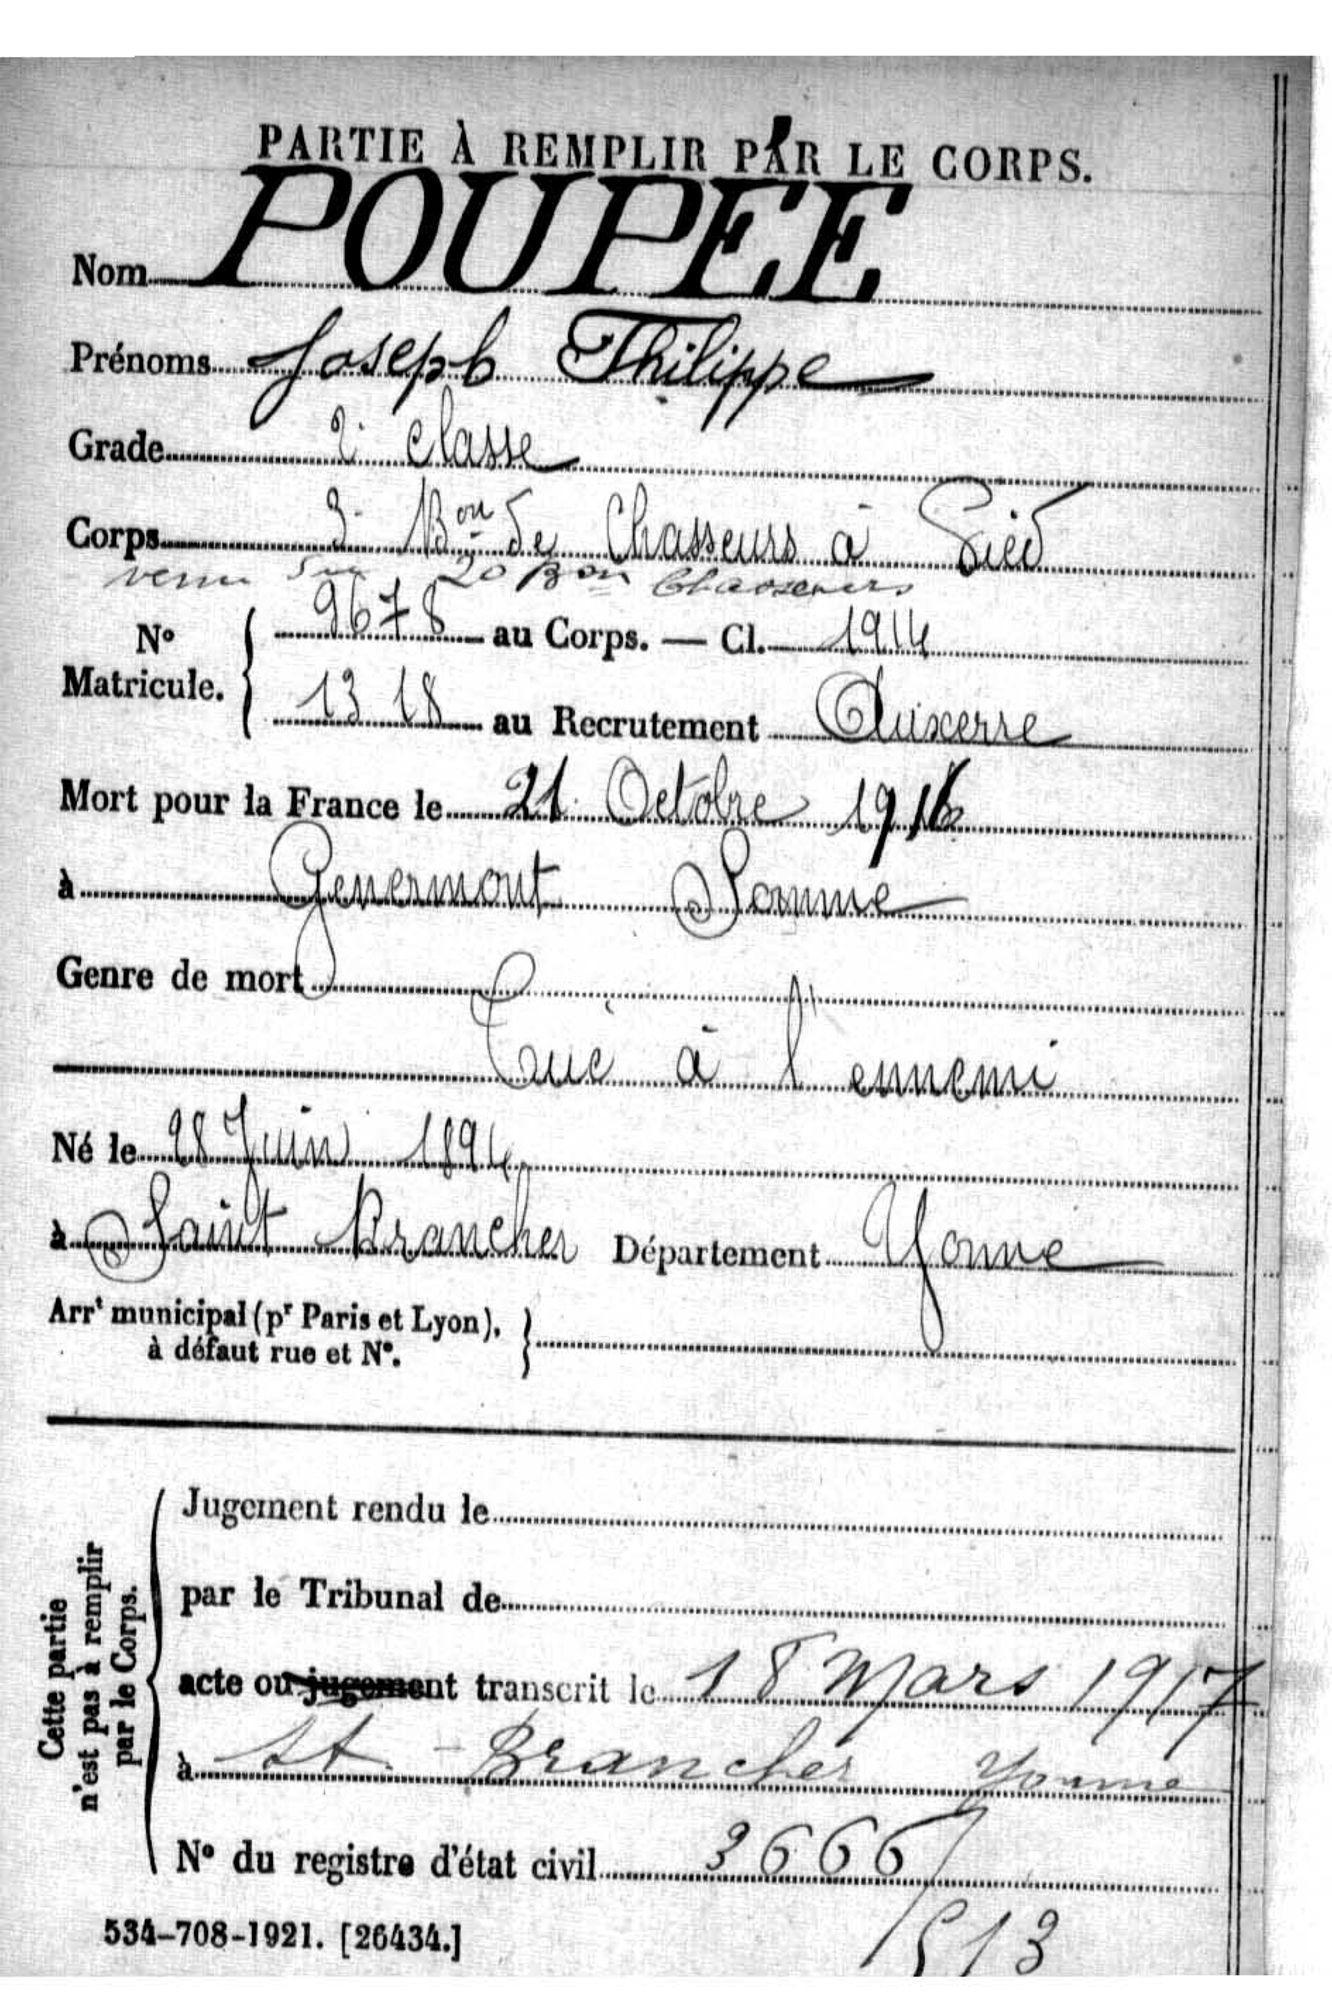 PARTIE À REMPLIR PAR LE CORPS.
Nom POUPÉE
Prénoms Joseph Philippe
Grade 2e classe
Corps 3e Bon de Chasseurs à Pied
venu du 20 Bon Chasseurs
N° Matricule. { 9678 au Corps. — Cl. 1914
1318 au Recrutement Auxerre
Mort pour la France le 21 Octobre 1916
à Genermont Somme
Genre de mort
Tué à l'ennemi
Né le 28 Juin 1894
à Saint Brancher Département Yonne
Arrt municipal (pr Paris et Lyon), }
à défaut rue et N°.
Cette partie n'est pas à remplir par le Corps.
Jugement rendu le
par le Tribunal de
acte ou jugement transcrit le 18 Mars 1917
à St - Brancher Yonne
N° du registre d'état civil 3666/
513
534-708-1921. [26434.]